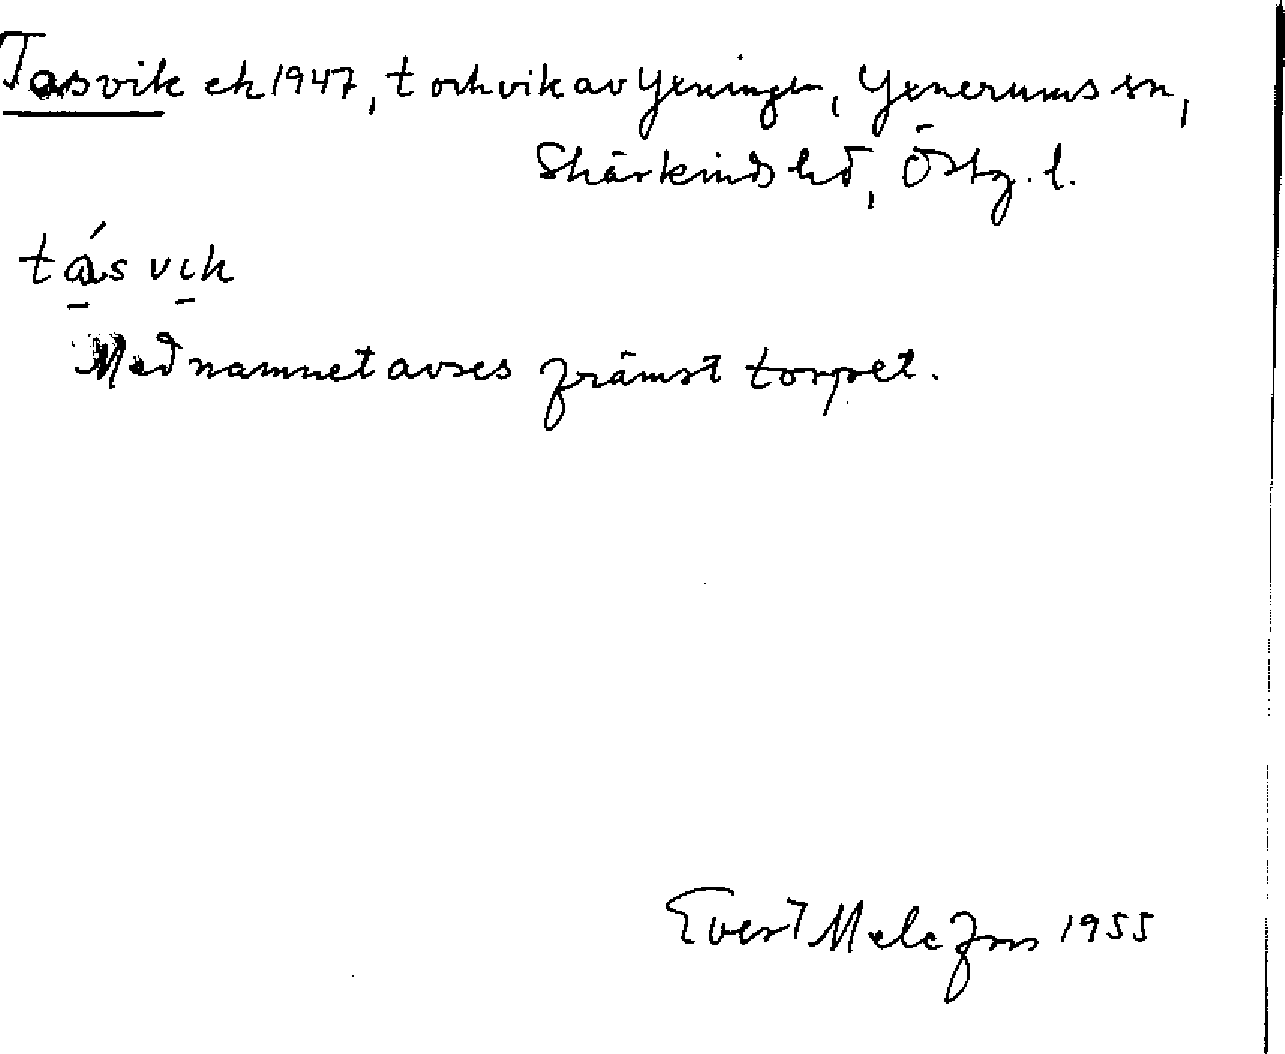 Tasvik ek 1947, t och vik av Yxningen, Yxnerums sn,
Skärkinds hd, Östg. l.
tásvik
Med namnet avses främst torpet.
Evert Melefors 1955